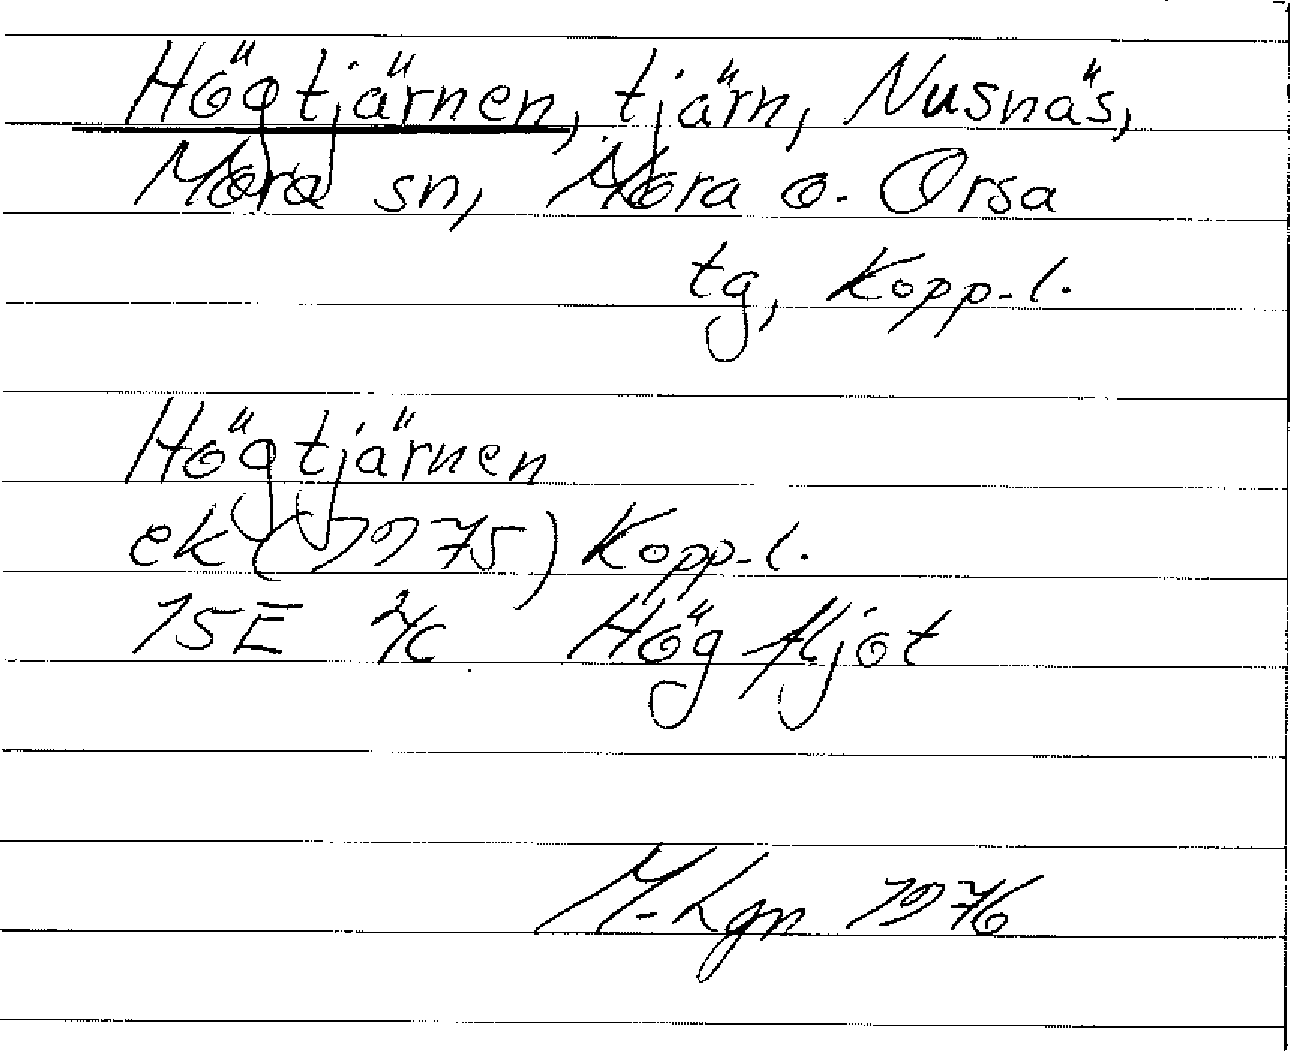 Högtjärnen, tjärn, Nusnäs,
Mora sn, Mora o. Orsa
tg, Kopp. l.
Högtjärnen
ek (1975) Kopp. l.
15E 4c Högfljot
M. Lgn 1976